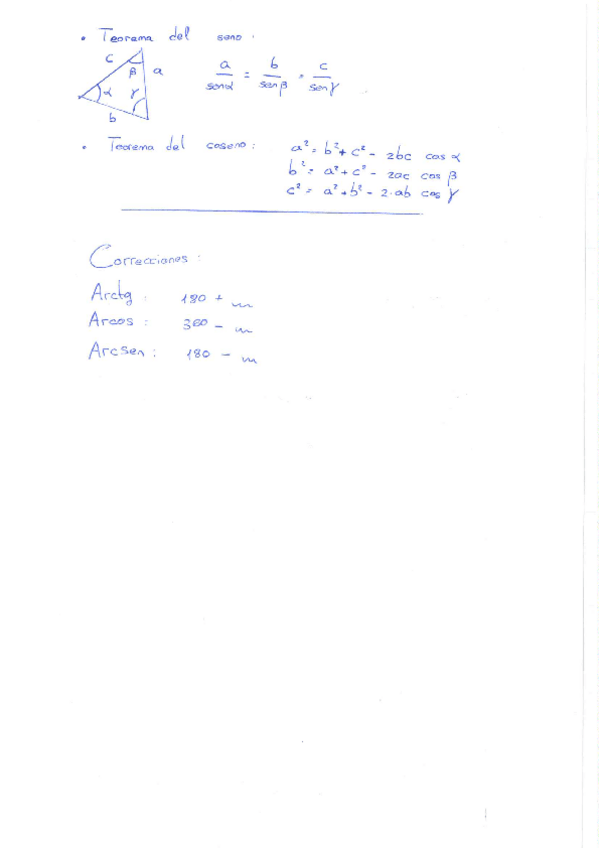 • Teorema del seno:
c β a
α γ
b
a/senα = b/senβ = c/senγ
• Teorema del coseno: a² = b² + c² - 2bc cos α
b² = a² + c² - 2ac cos β
c² = a² + b² - 2·ab cos γ
Correcciones:
Arctg: 180 + m
Arcos: 360 - m
Arcsen: 180 - m